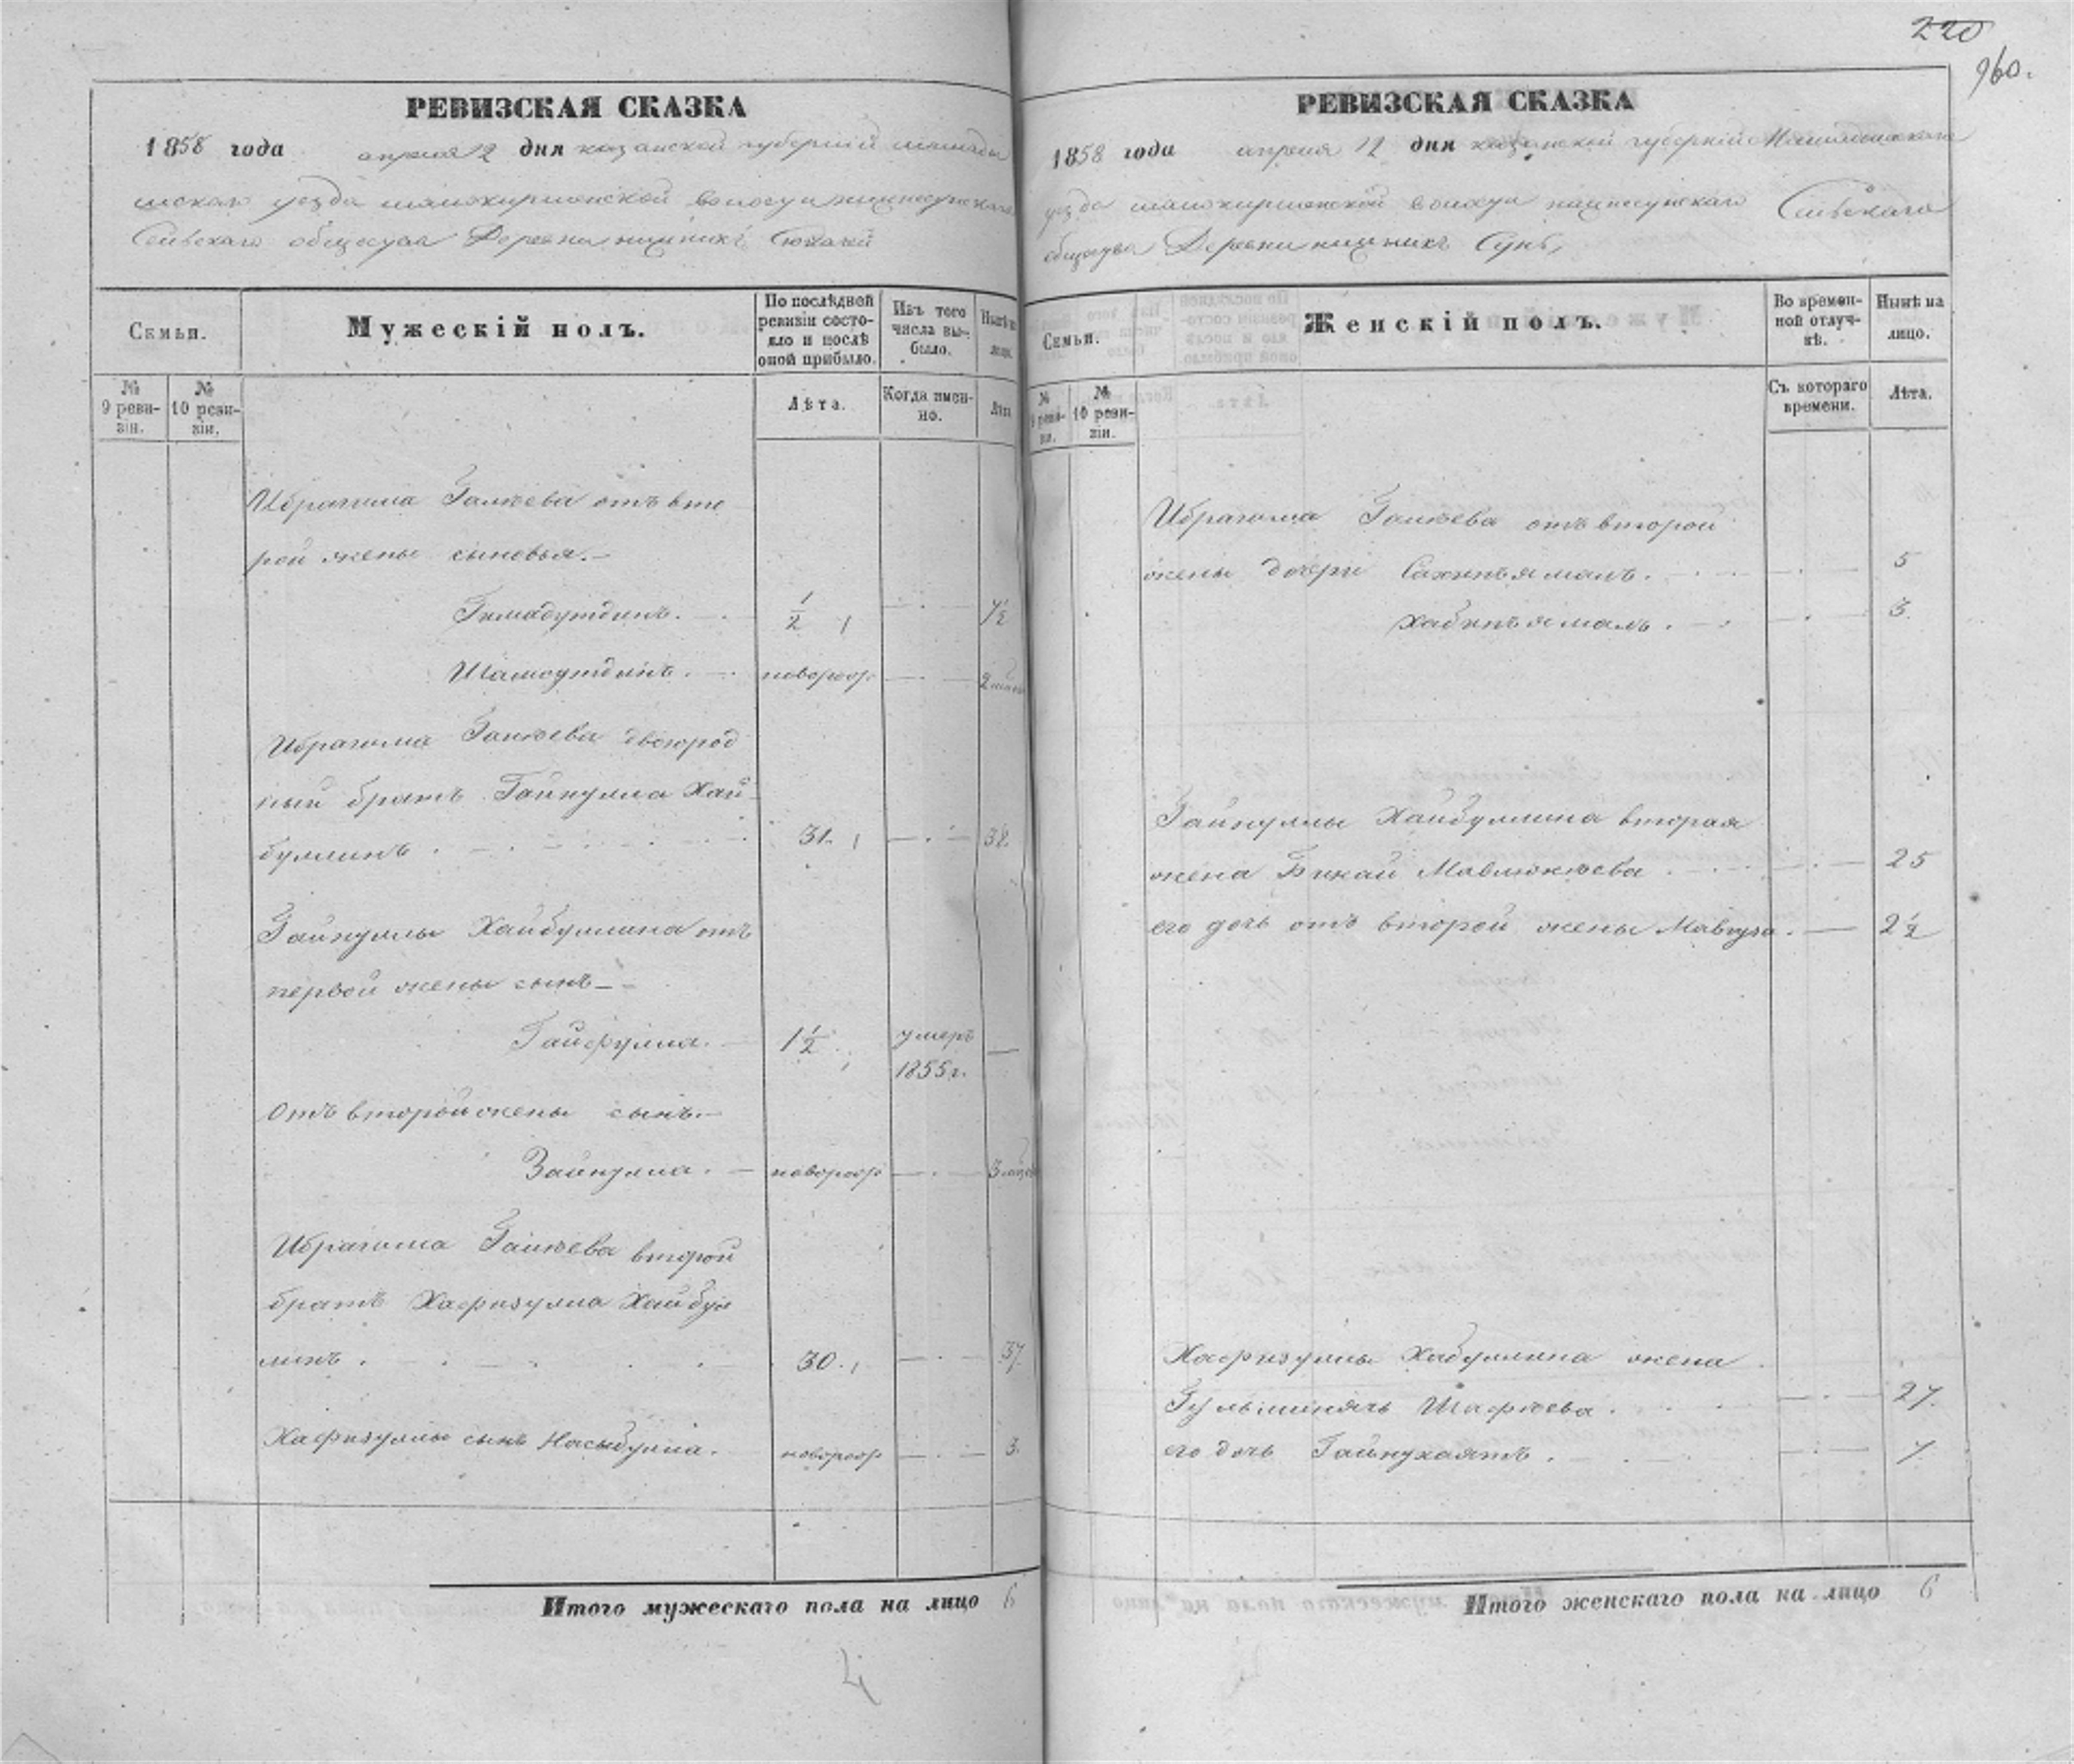 220
960.
РЕВИЗСКАЯ СКАЗКА
1858 года апреля 12 дня казанской губернии мамады
шскаго уезда волости
Сельскаго общества Деревни нижнихъ
Семьи.
Мужескій полъ.
По послѣдней ревизіи состояло и послѣ оной прибыло.
Изъ того числа выбыло.
Нынѣ на лицо.
№ 9 ревизіи.
№ 10 ревизіи.
Лѣта.
Когда именно.
Лѣта
Ибрагима Галѣева отъ вто
рой жены сыновья.
Гимадутдинъ. 1/2 7 1/2
Шамсутдинъ. новорож 2
Ибрагима Галѣева двоюрод
ный братъ Гайнулла Хай
буллинъ 31. 38.
Гайнуллы Хайбуллина отъ
первой жены сынъ
Гайфулла. 1 1/2 умеръ
1855 г.
Отъ второй жены сынъ.
Зайнулла. новорож 3
Ибрагима Галѣева второй
братъ Хафизулла Хайбул
линъ. 30. 37.
Хафизуллы сынъ Насыбулла. новорож 3.
Итого мужескаго пола на лицо 6
4
РЕВИЗСКАЯ СКАЗКА
1858 года апреля 12 дня казанской губерніи Мамадышскаго
уезда волости Сельскаго
общества Деревни нижнихъ Сунь,
Семьи.
Женскій полъ.
Во временной отлучкѣ.
Нынѣ на лицо.
№ 9 ревизіи.
№ 10 ревизіи.
Съ котораго времени.
Лѣта.
Ибрагима Галѣева отъ второй
жены дочери Сахипъямалъ. 5
Хабипъямалъ. 3.
Гайнуллы Хайбуллина вторая
жена Бикай Мавлюкѣева 25
его дочь отъ второй жены 2 1/2
Хафизуллы Хабуллина жена
Шафѣева. 27.
его дочь Гайнухаятъ. 7.
Итого женскаго пола на лицо 6